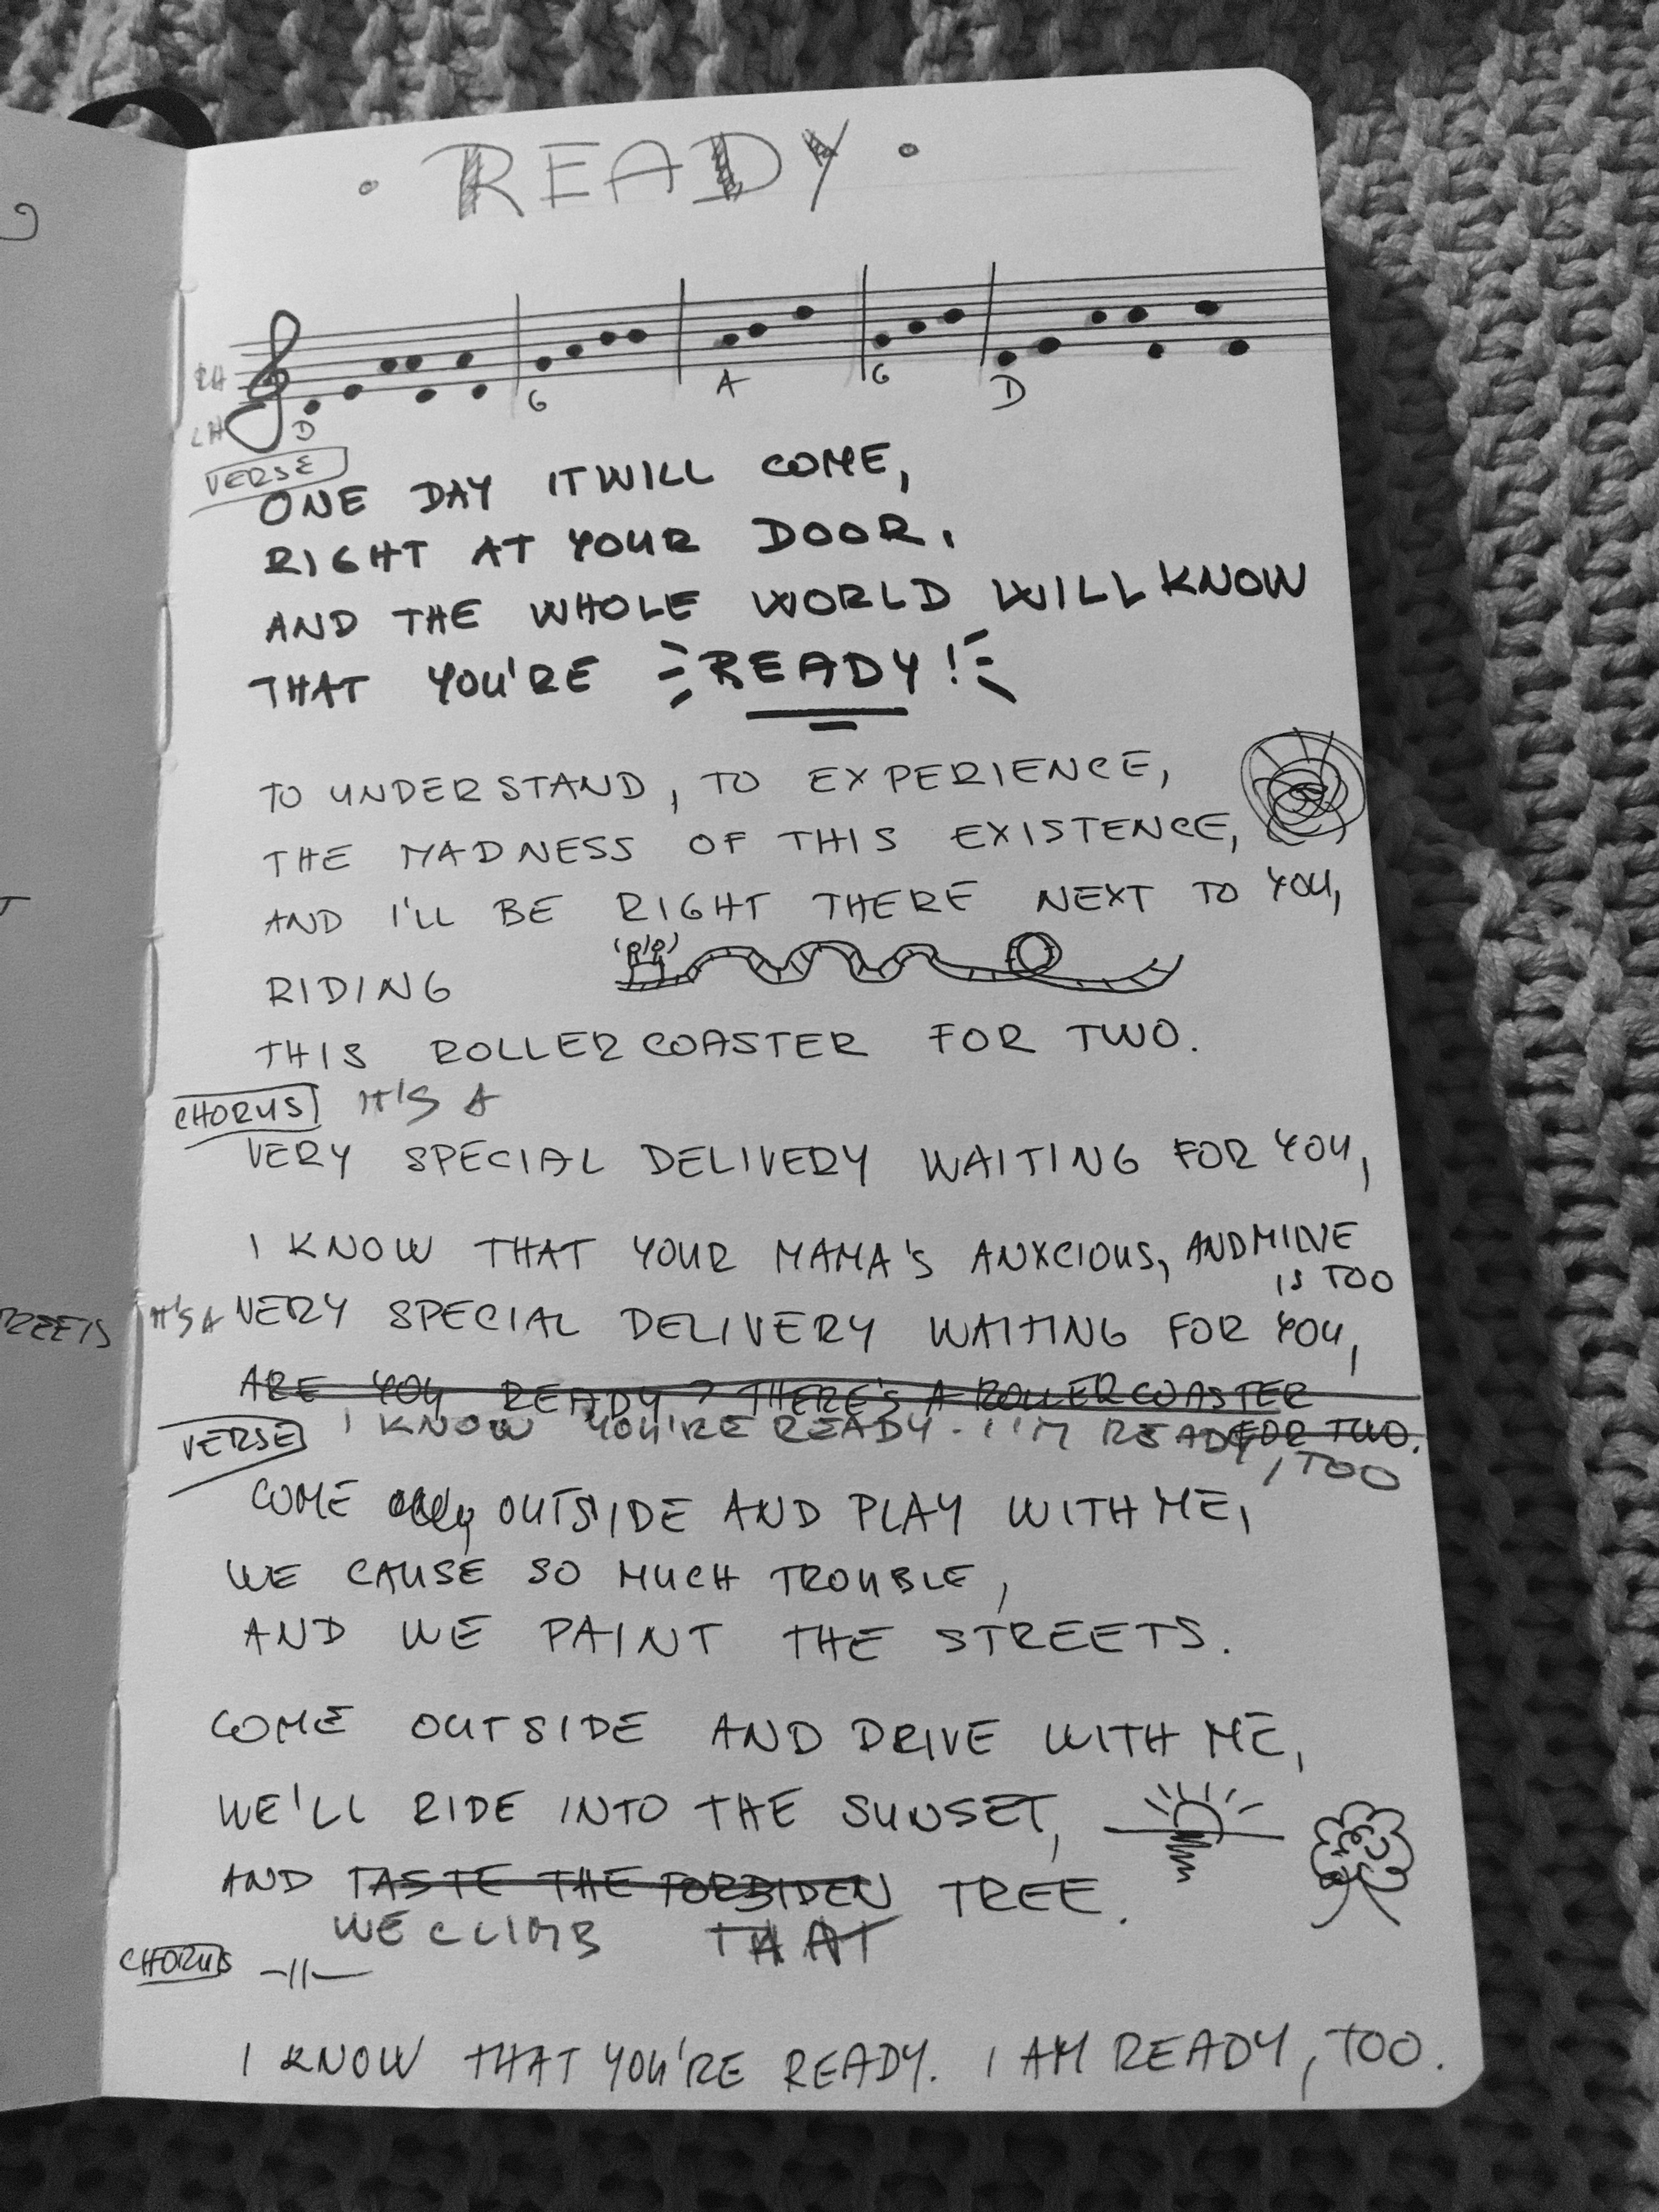 · READY ·
RH
LH
D G A G D
VERSE
ONE DAY IT WILL COME,
RIGHT AT YOUR DOOR,
AND THE WHOLE WORLD WILL KNOW
THAT YOU'RE READY!
TO UNDERSTAND, TO EXPERIENCE,
THE MADNESS OF THIS EXISTENCE,
AND I'LL BE RIGHT THERE NEXT TO YOU,
RIDING
THIS ROLLERCOASTER FOR TWO.
CHORUS IT'S A
VERY SPECIAL DELIVERY WAITING FOR YOU,
I KNOW THAT YOUR MAMA'S ANXCIOUS, AND MINE
IS TOO
IT'S A VERY SPECIAL DELIVERY WAITING FOR YOU,
ARE YOU READY? THERE'S A ROLLERCOASTER
FOR TWO.
VERSE I KNOW YOU'RE READY. I'M READY
, TOO
COME OUTSIDE AND PLAY WITH ME,
WE CAUSE SO MUCH TROUBLE,
AND WE PAINT THE STREETS.
COME OUTSIDE AND DRIVE WITH ME,
WE'LL RIDE INTO THE SUNSET,
AND TASTE THE FORBIDEN TREE.
WE CLIMB THAT
CHORUS -||-
I KNOW THAT YOU'RE READY. I AM READY, TOO.